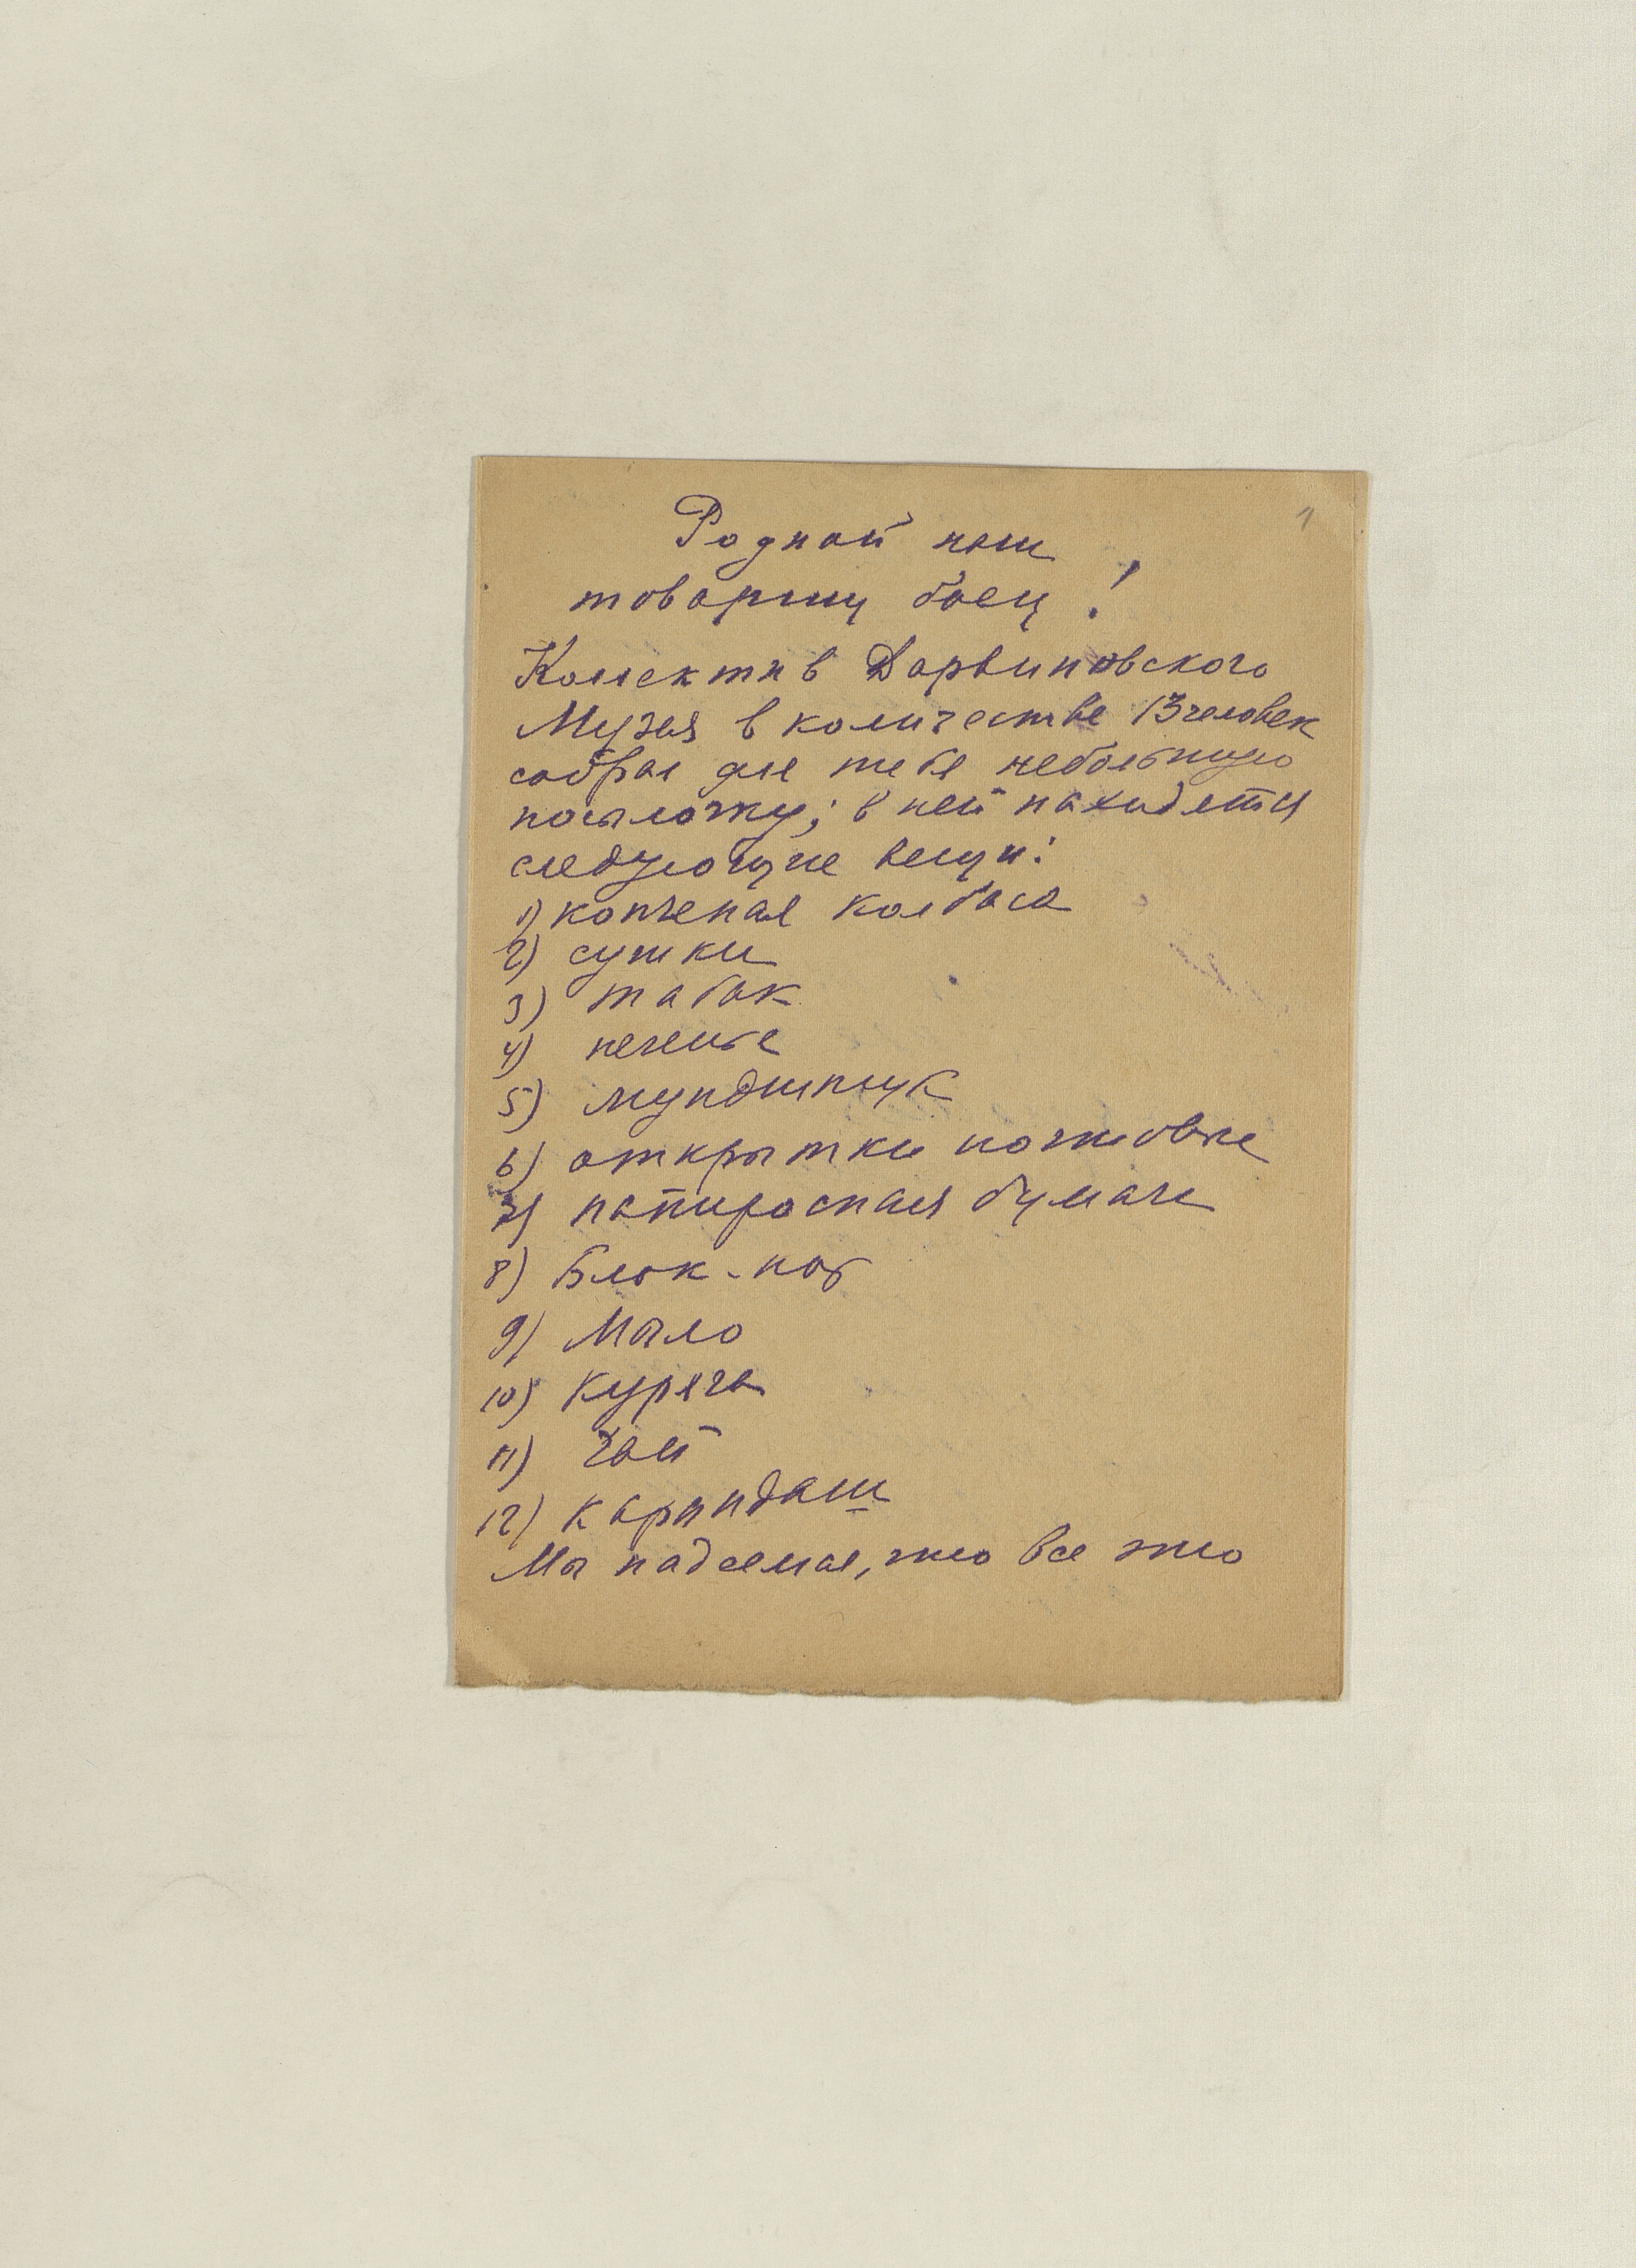 1
Родной наш
товарищ боец!
Коллектив Дарвиновского
Музея в количестве 13 человек
собрал для тебя небольшую
посылочку; в ней находятся
следующие вещи:
1) копченая колбаса
2) сушки
3) табак
4) печенье
5) мундштук
6) открытки почтовые
7) папиросная бумага
8) Блок-нот
9) Мыло
10) Курага
11) Чай
12) Карандаш
Мы надеемся, что все это